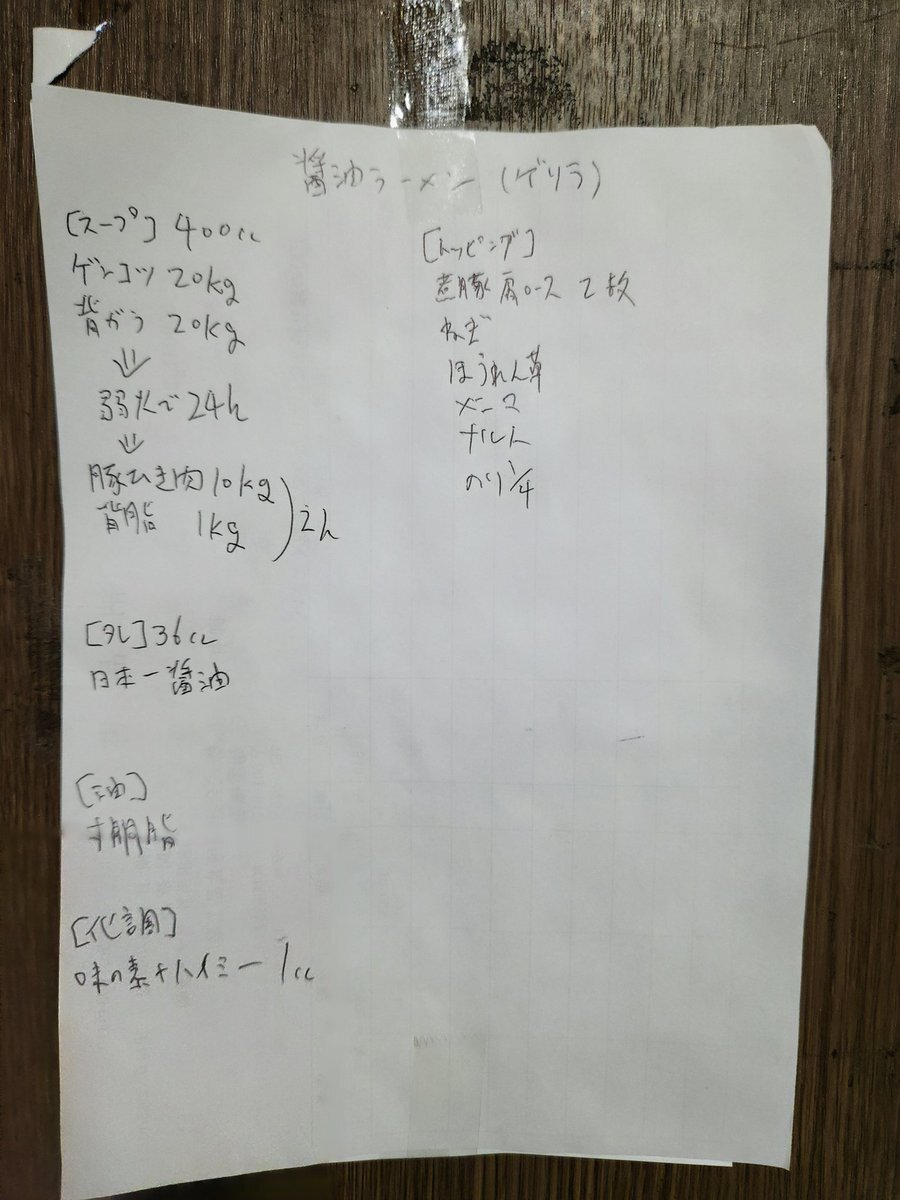 醤油ラーメン (ゲリラ)
[スープ] 400cc
ゲンコツ 20kg
背ガラ 20kg
⇓
弱火で24h
⇓
豚ひき肉10kg
背脂 1kg
2h
[タレ]36cc
日本一醤油
[油]
脂
[化調]
味の素+ハイミー 1cc
[トッピング]
煮豚肩ロース 2枚
ねぎ
ほうれん草
メンマ
ナルト
のり1/4